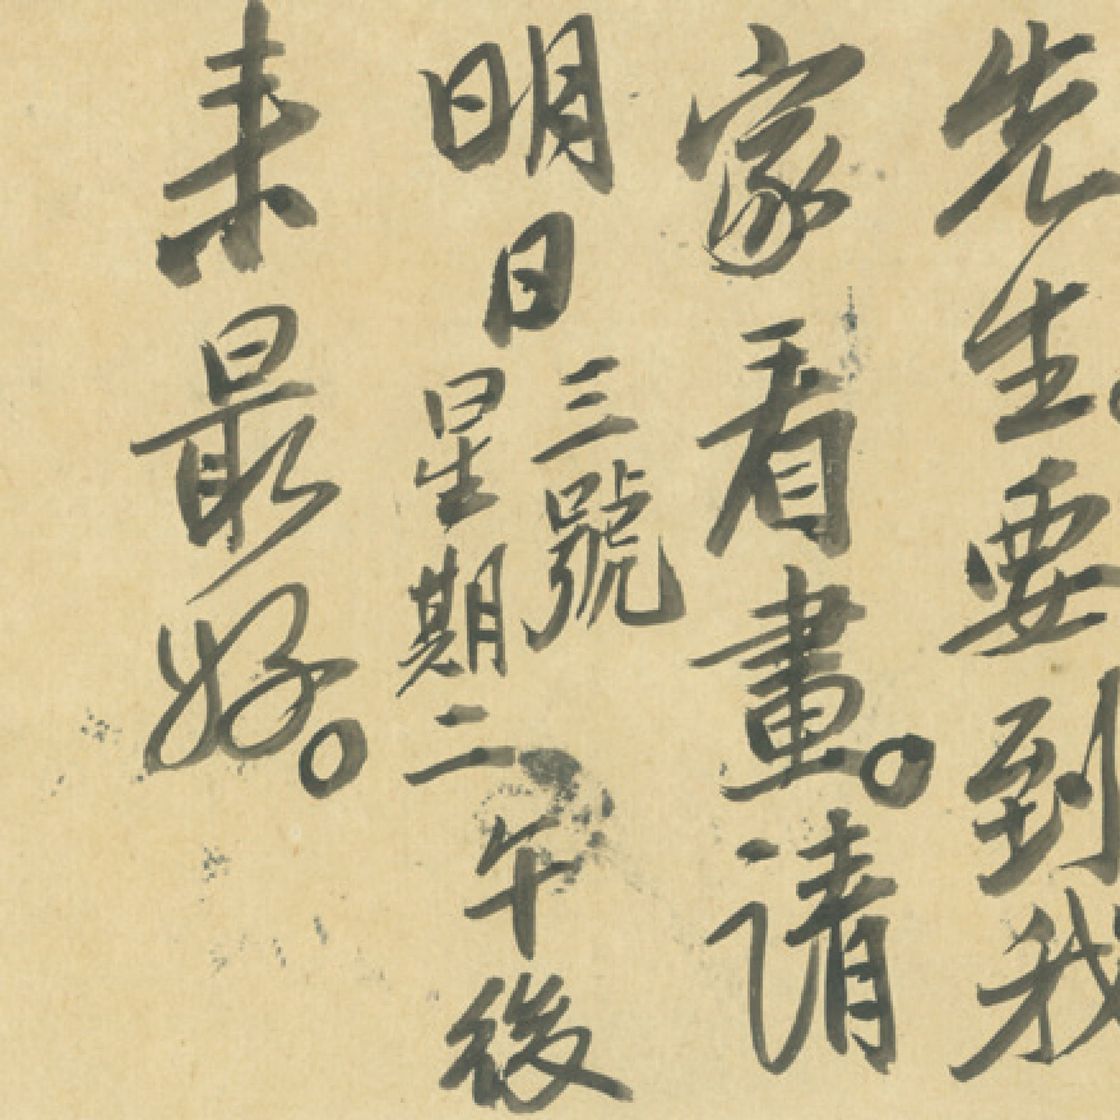 先生。要到我
家看畫。请
明日三號星期二午後
来最好。